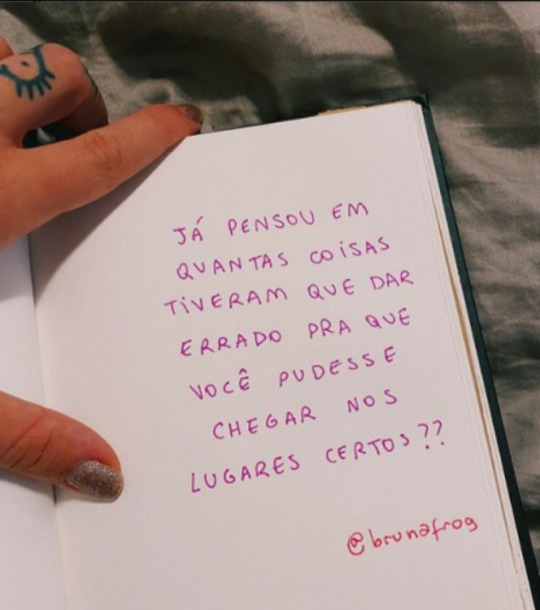 JÁ PENSOU EM
QUANTAS COISAS
TIVERAM QUE DAR
ERRADO PRA QUE
VOCÊ PUDESSE
CHEGAR NOS
LUGARES CERTOS??
@brunafrog